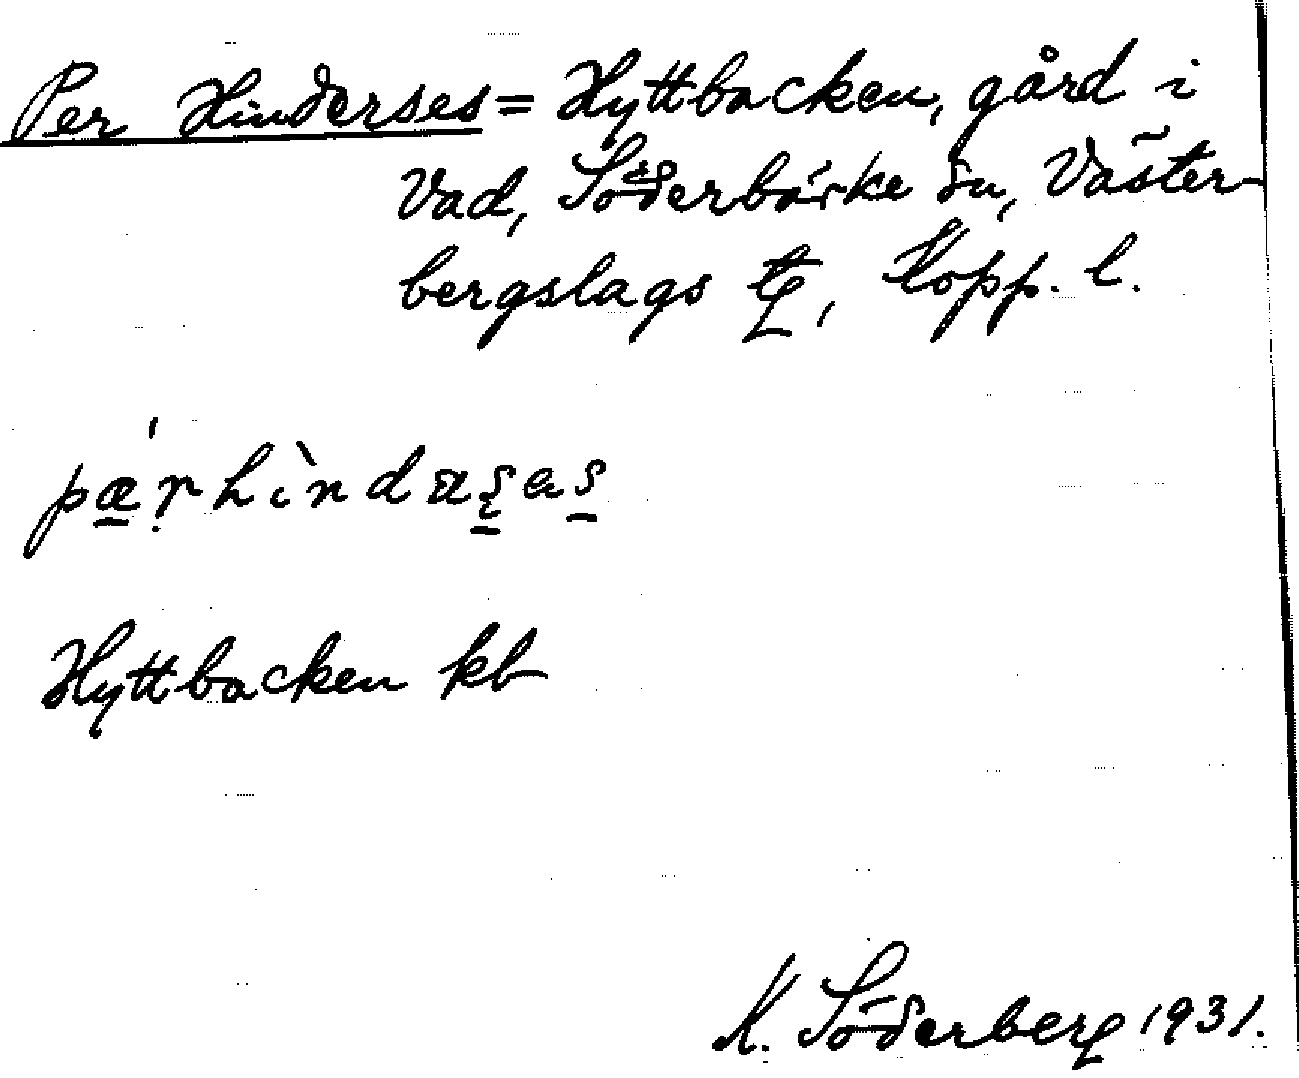 Per Hinderses = Hyttbacken, gård i
Vad, Söderbärke sn, Väster-
bergslags tg, Kopp. l.
pæ̲ṛ́hìndaʂ̲as̲
Hyttbacken kb
K. Söderberg 1931.